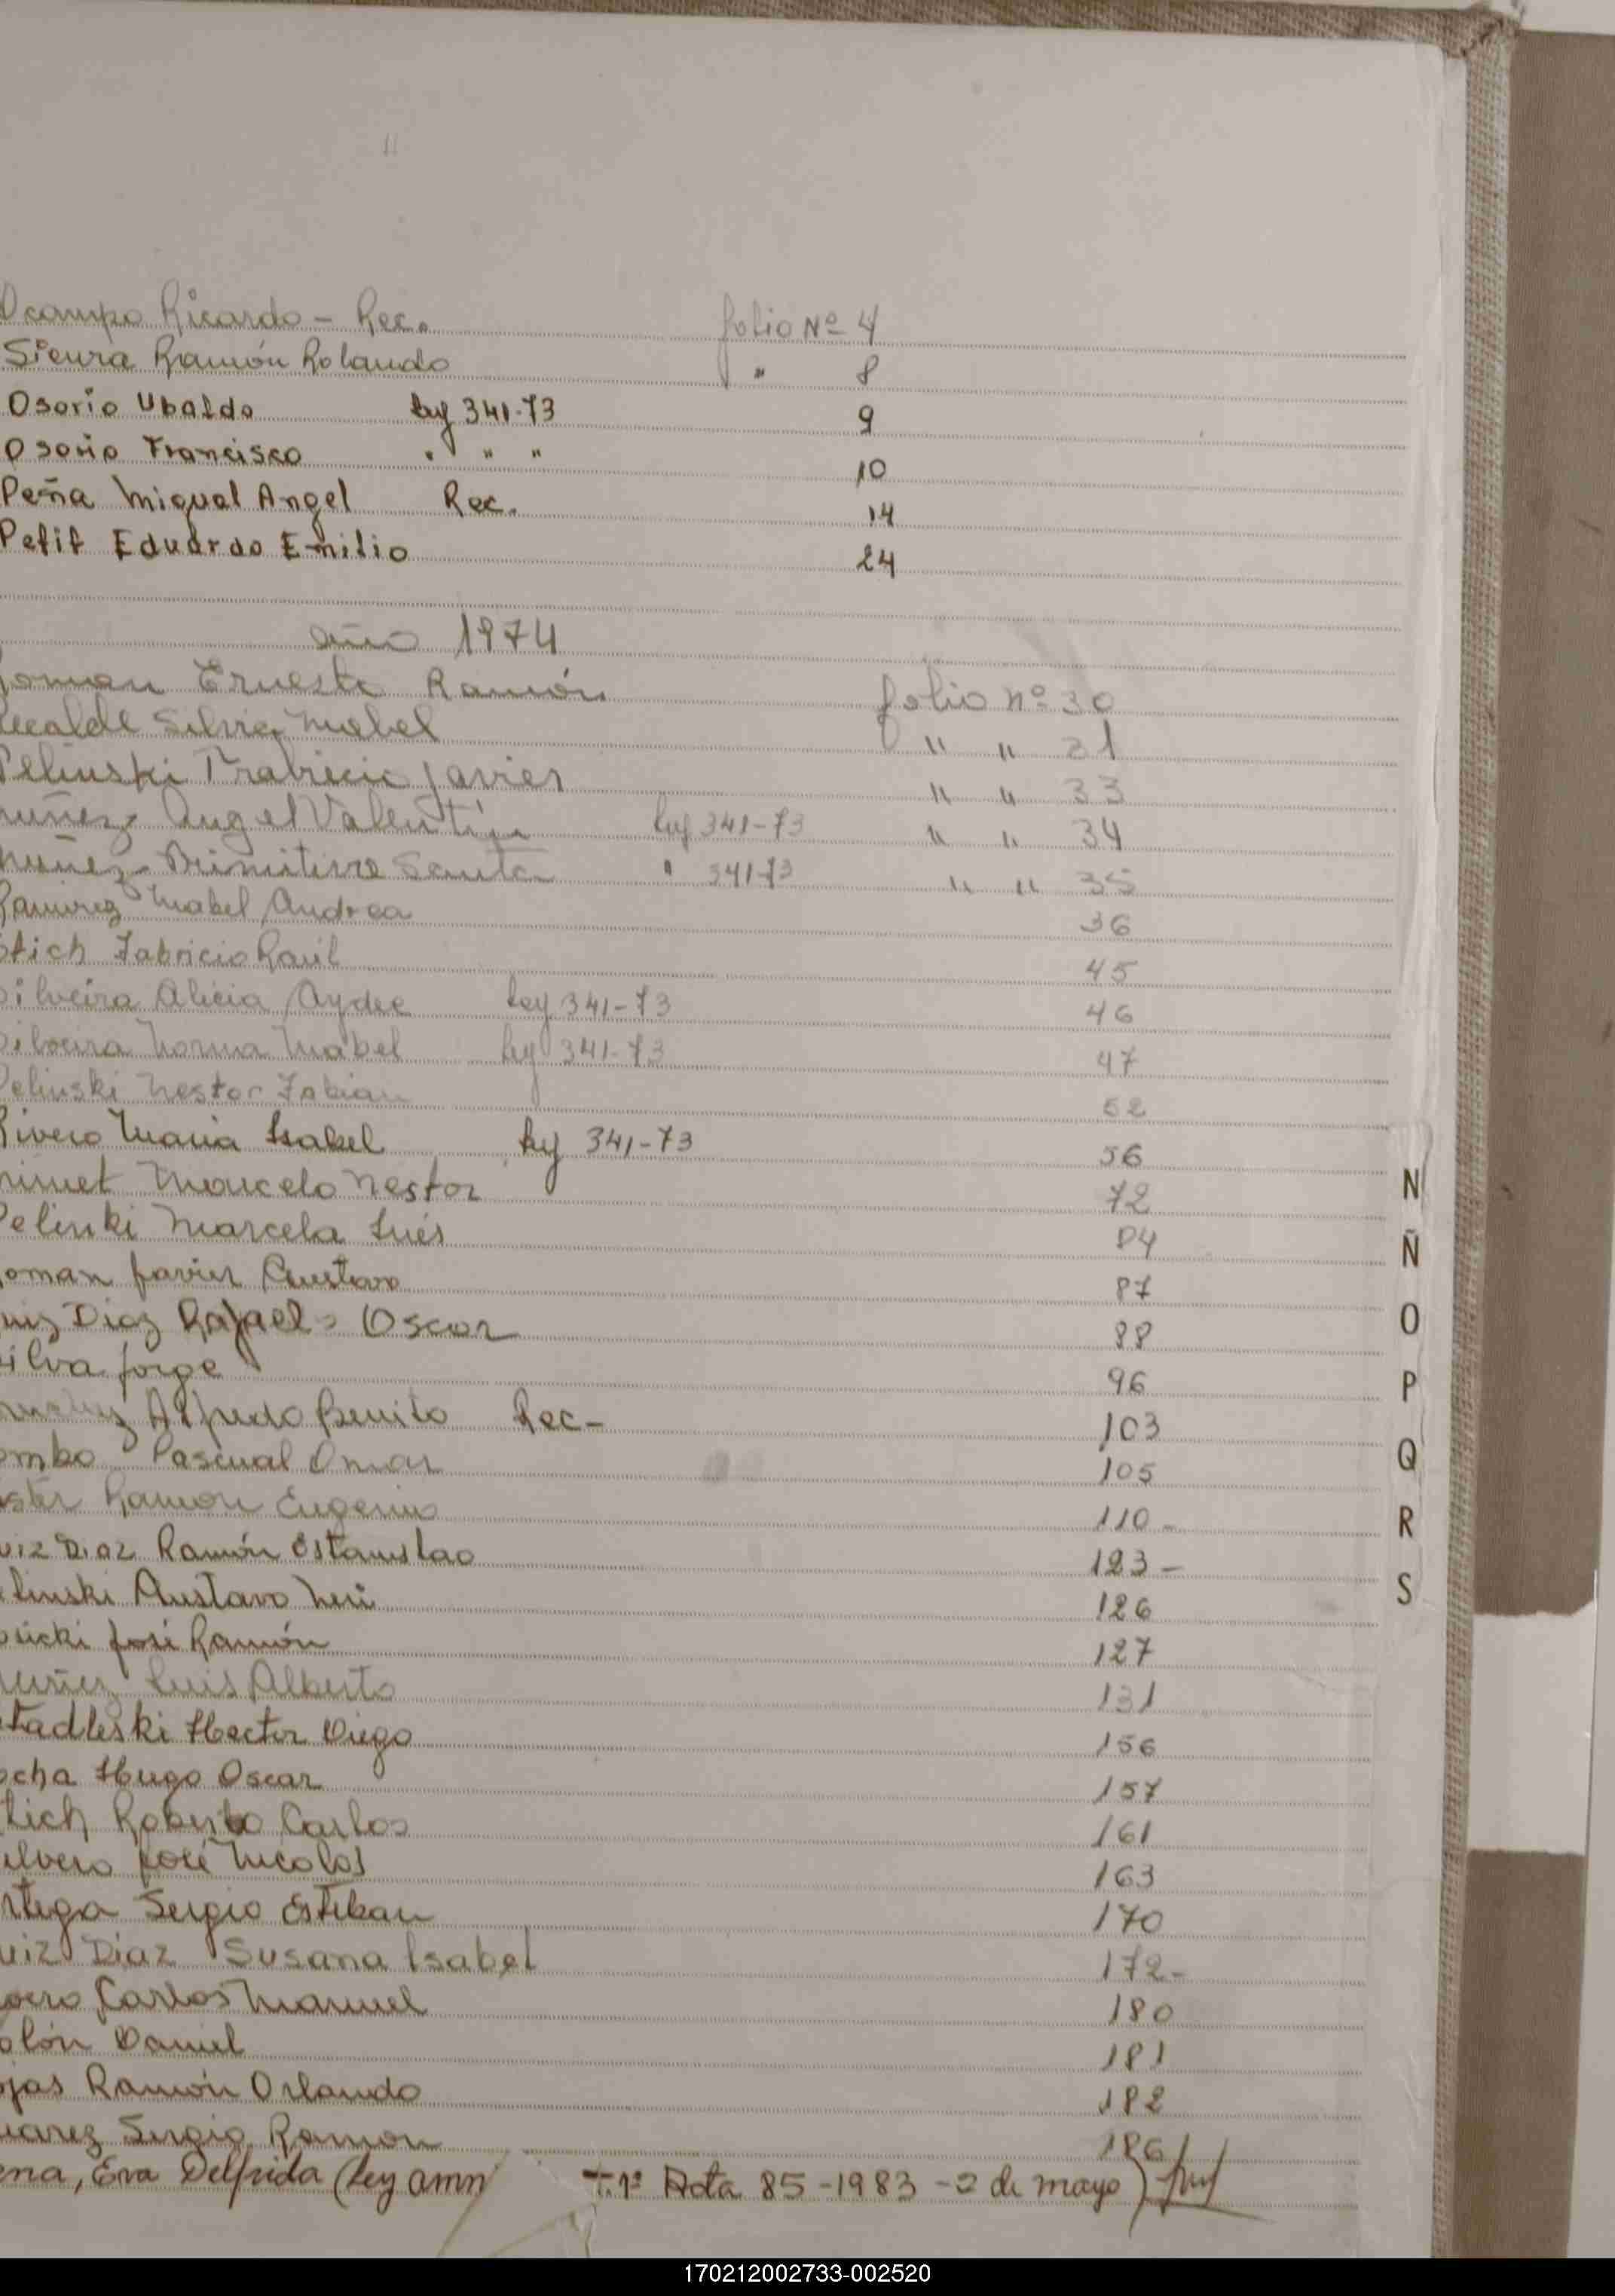 Ocampo Ricardo - Rec. folio Nº 4
Sieura Ramón Rolando " 8
Osorio Ubaldo ley 341-73 9
Osorio Francisco " " " 10
Peña Miguel Angel Rec. 14
Petit Eduardo Emilio 24
año 1974
oman Ernesto Ramón folio nº 30
ecalde Silvia Mabel " " 31
Pelinski Frabricio Javier " " 33
nuñez Angel Valentín ley 341-73 " " 34
nuñez Primitiva Santa " 341-73 " " 35
Ramirez Mabel Andrea 36
stich Fabricio Raúl 45
Silveira Alicia Aydee ley 341-73 46
Silveira Norma Mabel ley 341-73 47
Pelinski Nestor Fabian 52
Rivero Maria Isabel ley 341-73 56
Marcelo Nestor 72
Pelinki Marcela Inés 84
oman Javier Gustavo 87
uiz Diaz Rafael Oscar 88
Silva Jorge 96
Alfredo Benito Rec- 103
ombo Pascual Omar 105
ster Ramon Eugenio 110 -
uiz Diaz Ramón Estanislao 123 -
elinski Gustavo 126
osicki José Ramón 127
Nuñez Luis Alberto 131
Stadleski Hector Diego 156
ocha Hugo Oscar 157
tich Roberto Carlos 161
ilvero José Nicolas 163
rtega Sergio Esteban 170
uiz Diaz Susana Isabel 172 -
vero Carlos Manuel 180
olón Daniel 181
ojas Ramón Orlando 182
uarez Sergio Ramon 186
ena, Eva Delfrida (Ley amn T. 1º Acta 85 - 1983 - 2 de mayo)
N
Ñ
O
P
Q
R
S
170212002733-002520